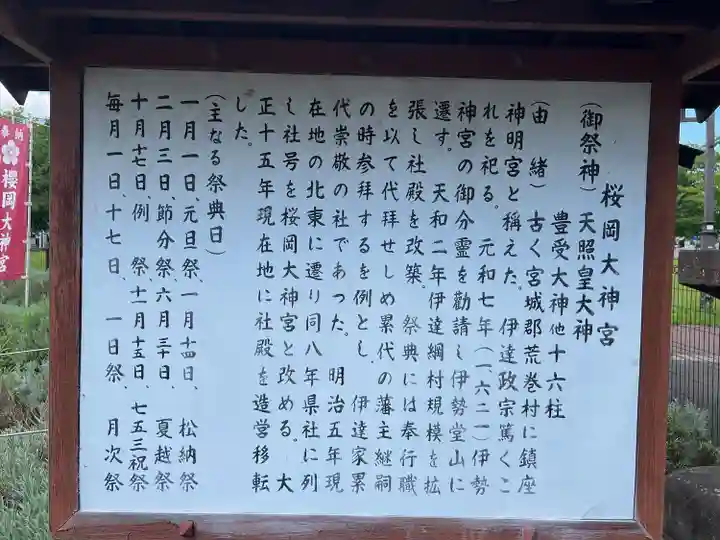 桜岡大神宮
(御祭神)天照皇大神
豊受大神他十六柱
(由緒)古く宮城郡荒巻村に鎮座
神明宮と稱えた。伊達政宗篤くこ
れを祀る。元和七年(一六二一)伊勢
神宮の御分霊を勧請し伊勢堂山に
遷す。天和二年伊達綱村規模を拡
張し社殿を改築。祭典には奉行職
を以て代拝せしめ累代の藩主継嗣
の時参拝するを例とし、伊達家累
代崇敬の社であった。明治五年現
在地の北東に遷り同八年県社に列
し社号を桜岡大神宮と改める。大
正十五年現在地に社殿を造営移転
した。
(主なる祭典日)
一月一日、元旦祭、一月十四日、松納祭
二月三日、節分祭、六月三十日、夏越祭
十月十七日、例祭、十一月十五日、七五三祝祭
毎月一日、十七日、一日祭、月次祭
奉納
櫻岡大神宮